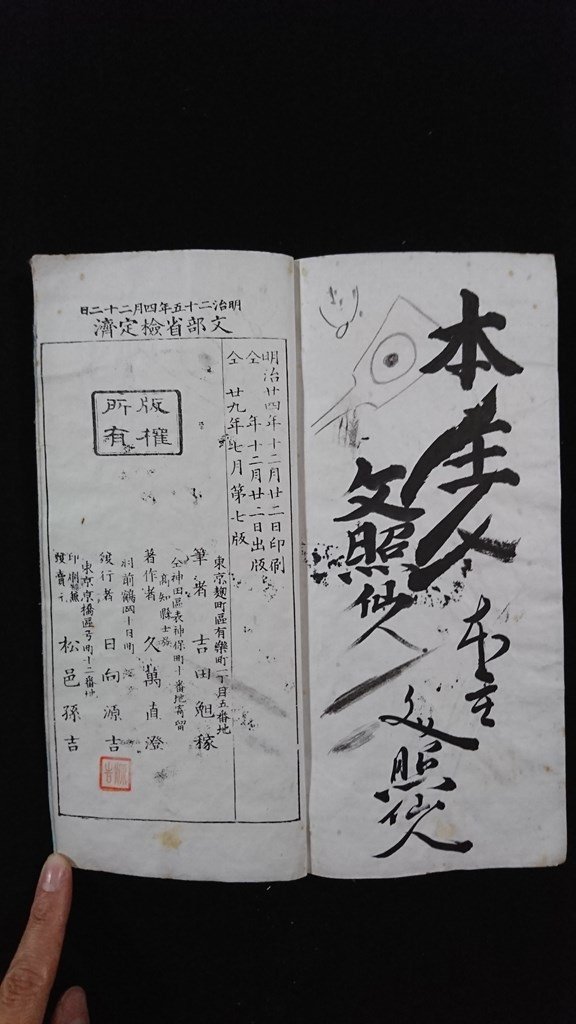 本主
文照仙人
本主
文照仙人
明治二十五年四月二十二日
文部省檢定濟
明治廿四年十二月廿二日印刷
仝 年十二月廿二日出版
仝 廿九年七月第七版
版權
所有
東京麹町區有樂町一丁目五番地
筆者 吉田 稼
仝神田區表神保町十番地寄留
高知縣士族
著作者 久萬直澄
羽前鶴岡十日町
發行者 日向源吉
東京京橋區弓町十二番地
印刷兼
發賣 松邑孫吉